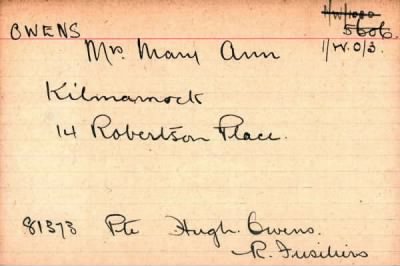 OWENS
1/W/1080
5606.
1/W.O/3.
Mrs. Mary Ann
Kilmarnock
14 Robertson Place.
81373 Pte Hugh Owens.
R. Fusiliers